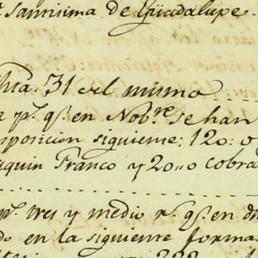 santisima de Guadalupe.
hta. 31 del mismo
a p.r q.e en Nob.re se han
mposicion siguiente: 120: o
aquin Franco y 20:: o cobra
p.r tres y medio r.s q.e en d
do en la siguiente forma